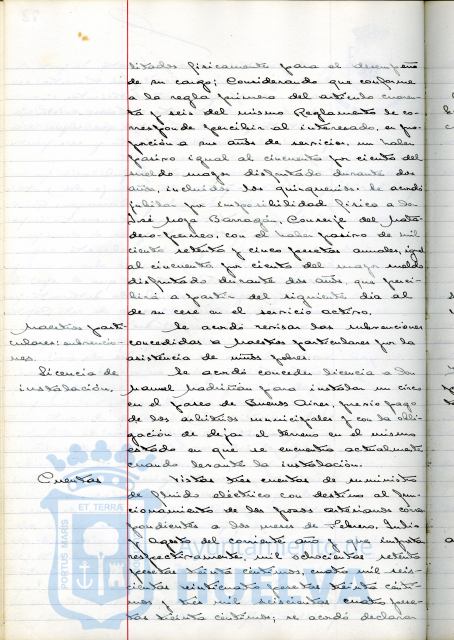 litados físicamente para el desempeño
de su cargo; Considerando que conforme
a la regla primera del artículo cuaren-
ta y seis del mismo Reglamento le co-
rresponde percibir al interesado, en pro-
porción a sus años de servicios, un haber
pasivo igual al cincuenta por ciento del
sueldo mayor disfrutado durante dos
años, incluidos los quinquenios. Se acordó
jubilar por imposibilidad física a don
José Moya Barragán, Conserje del Mata-
dero-perreo, con el haber pasivo de mil
ciento setenta y cinco pesetas anuales, igual
al cincuenta por ciento del mayor sueldo
disfrutado durante dos años, que perci-
birá a partir del siguiente día al
de su cese en el servicio activo.
Maestros parti-
culares: subvencio-
nes.
Se acordó revisar las subvenciones
concedidas a Maestros particulares por la
asistencia de niños pobres.
Licencia de
instalación.
Se acordó conceder licencia a don
Manuel para instalar un circo
en el paseo de Buenos Aires, previo pago
de los arbitrios municipales y con la obli-
gación de dejar el terreno en el mismo
estado en que se encuentra actualmente
cuando levante la instalación.
Cuentas
Vistas tres cuentas de suministro
de fluido eléctrico con destino al fun-
cionamiento de los pozos artesianos corres-
pondientes a los meses de Febrero, Julio
y Agosto del corriente año y que importan
respectivamente, mil ochocientas setenta
pesetas treinta céntimos, cuatro mil seis-
cientas veinticuatro pesetas treinta cénti-
mos y tres mil seiscientas cuatro pese-
tas treinta céntimos; se acordó declarar
PORTUS MARIS ET TERRAE
Ayuntamiento de
HUELVA